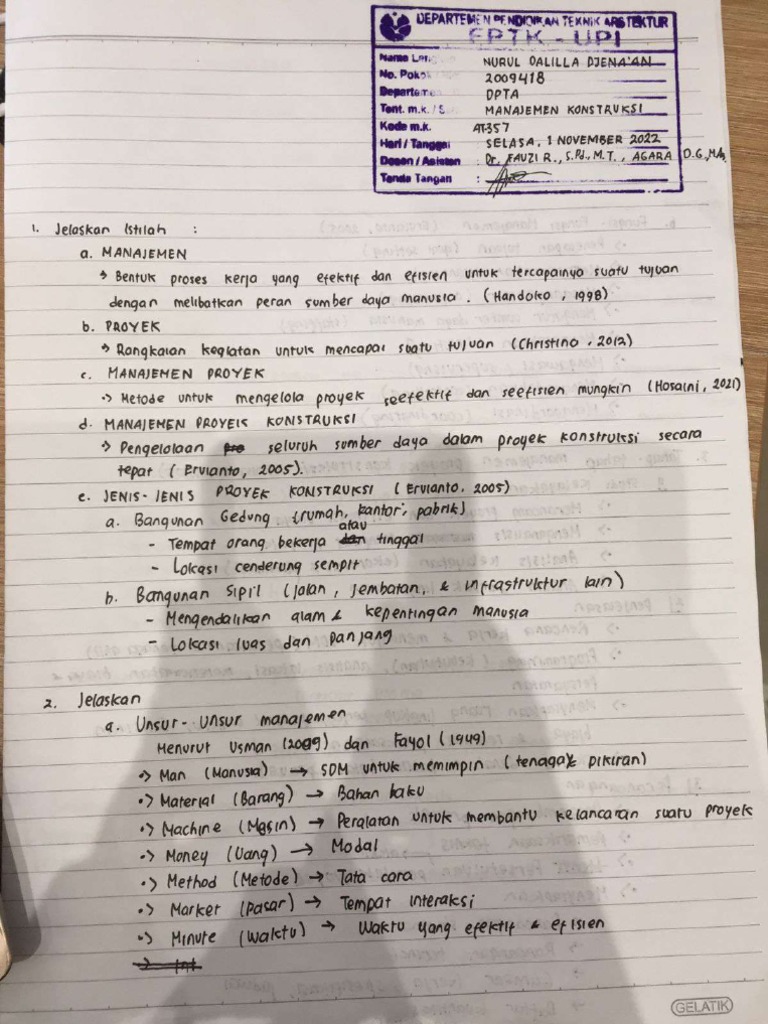 DEPARTEMEN PENDIDIKAN TEKNIK ARSITEKTUR
FPTK - UPI
Nama Lengkap : NURUL DALILLA DJENA'AN
No. Pokok : 2009418
Departemen : DPTA
Tent. m.k. / S : MANAJEMEN KONSTRUKSI
Kode m.k. : AT357
Hari / Tanggal : SELASA, 1 NOVEMBER 2022
Dosen / Asisten : Dr. FAUZI R., S.Pd., M.T., AGARA D.G.,
Tanda Tangan :
1. Jelaskan Istilah :
a. MANAJEMEN
→ Bentuk proses kerja yang efektif dan efisien untuk tercapainya suatu tujuan
dengan melibatkan peran sumber daya manusia. (Handoko, 1998)
b. PROYEK
→ Rangkaian kegiatan untuk mencapai suatu tujuan (Christino, 2012)
c. MANAJEMEN PROYEK
→ Metode untuk mengelola proyek seefektif dan seefisien mungkin (Hosaini, 2021)
d. MANAJEMEN PROYEK KONSTRUKSI
→ Pengelolaan pro seluruh sumber daya dalam proyek konstruksi secara
tepat (Ervianto, 2005).
e. JENIS-JENIS PROYEK KONSTRUKSI (Ervianto, 2005)
a. Bangunan Gedung (rumah, kantor, pabrik)
- Tempat orang bekerja dan atau tinggal
- Lokasi cenderung sempit
b. Bangunan Sipil (jalan, jembatan, & infrastruktur lain)
- Mengendalikan alam & kepentingan manusia
- Lokasi luas dan panjang
2. Jelaskan
a. Unsur-Unsur manajemen
Menurut Usman (2009) dan Fayol (1949)
→ Man (Manusia) → SDM untuk memimpin (tenaga & pikiran)
→ Material (Barang) → Bahan baku
→ Machine (Mesin) → Peralatan untuk membantu kelancaran suatu proyek
→ Money (Uang) → Modal
→ Method (Metode) → Tata cara
→ Market (Pasar) → Tempat interaksi
→ Minute (Waktu) → Waktu yang efektif & efisien
→ Int
GELATIK